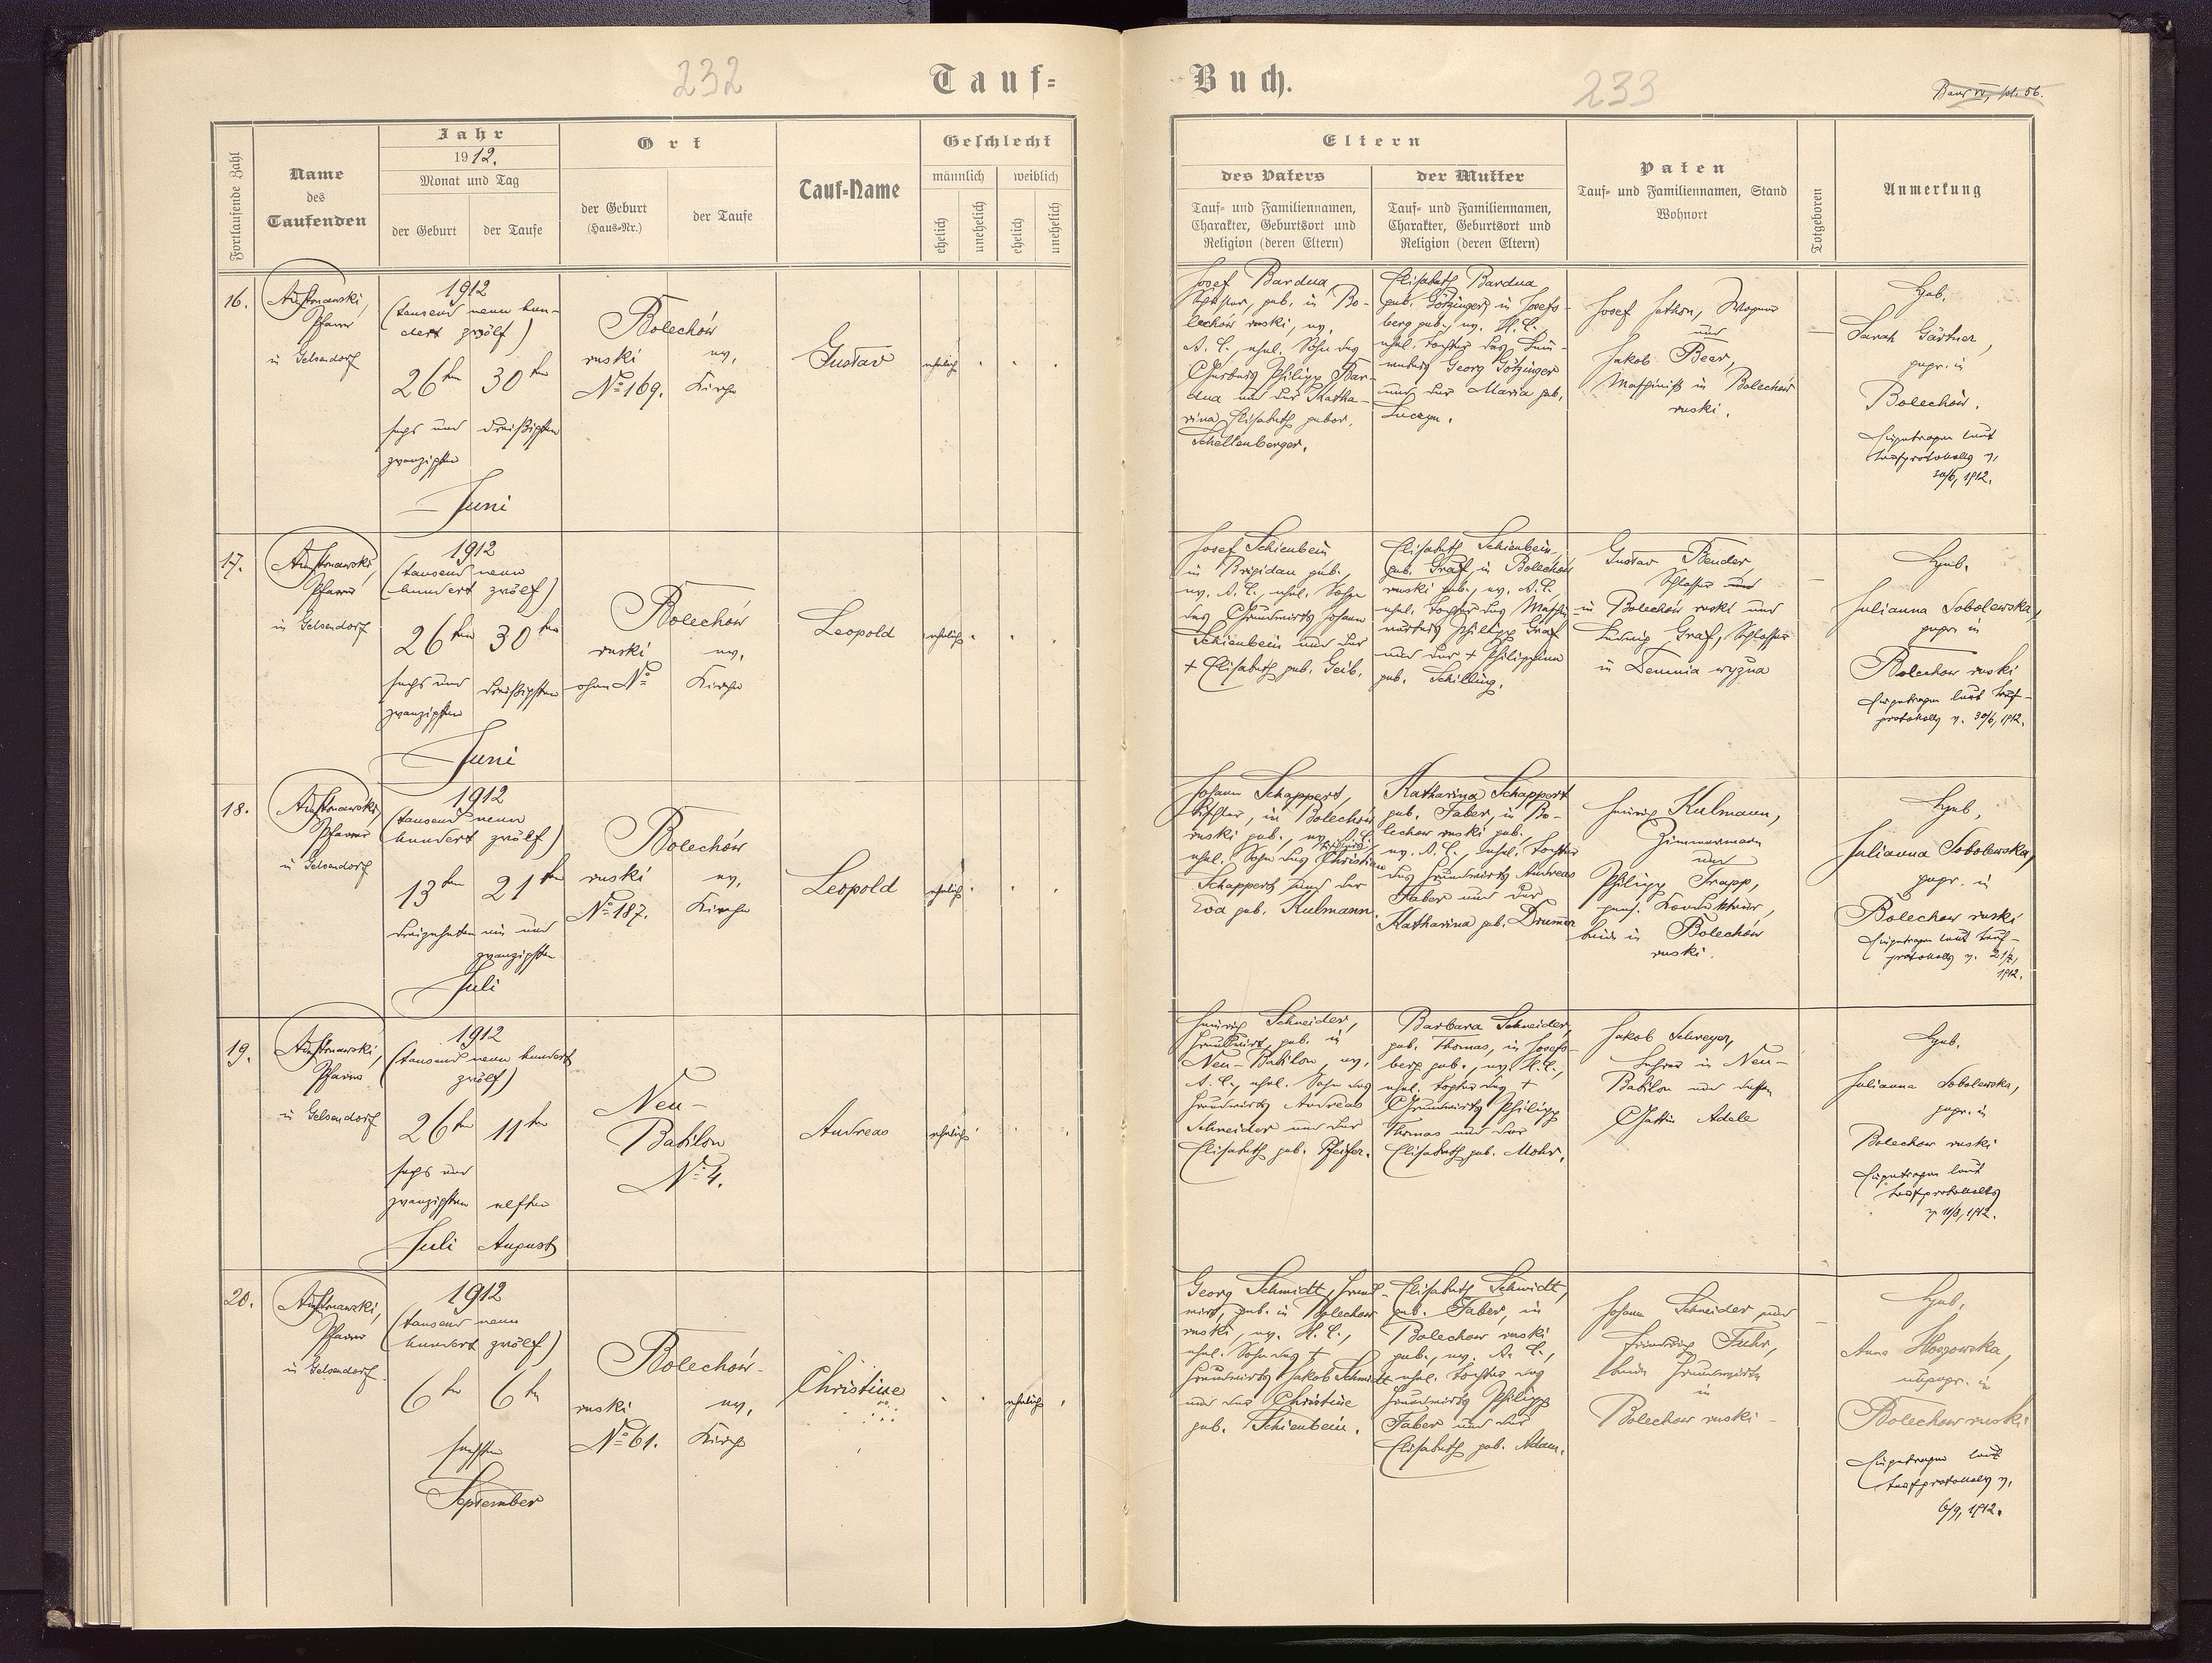 232
Tauf=
Buch.
233
Fortlaufende Zahl
Name
des
Taufenden
Jahr
1912.
Monat und Tag
der Geburt
der Taufe
Ort
der Geburt
(Haus=Nr.)
der Taufe
Tauf=Name
Geschlecht
männlich
weiblich
ehelich
unehelich
ehelich
unehelich
Eltern
des Vaters
Tauf= und Familiennamen,
Charakter, Geburtsort und
Religion (deren Eltern)
der Mutter
Tauf= und Familiennamen,
Charakter, Geburtsort und
Religion (deren Eltern)
Paten
Tauf= und Familiennamen, Stand
Wohnort
Totgeboren
Anmerkung
16.
Pfarrer
in Gelsendorf
1912
(tausend neun hun-
dert zwölf)
26ten 30ten
sechs und dreißigsten
zwanzigsten
Juni
Bolechów
ruski ev.
No 169. Kirche
Gustav
ehelich
Josef Bardua,
geb. in Bo-
lechów ruski, ev.
A. C., ehel. Sohn des
Philipp Bar-
dua und der Katha-
rina Elisabeth gebor.
Schellenberger.
Elisabeth Bardua
geb. Götzinger, in Josefs-
berg geb., ev. H. C.,
ehel. Tochter des
Georg Götzinger
und der Maria geb.
Josef Jethon, Wagner
und
Jakob Beer,
Maschinist in Bolechów
ruski.
Heb.
Sarah Gärtner,
gepr. in
Bolechów.
Eingetragen laut
Taufprotokolls v.
30/6, 1912.
17.
Pfarrer
in Gelsendorf
1912
(tausend neun
hundert zwölf)
26ten 30ten
sechs und dreißigsten
zwanzigsten
Juni
Bolechów
ruski ev.
ohne No Kirche
Leopold
ehelich
Josef Schienbein
in Brigidau geb.,
ev. A. C., ehel. Sohn
des Grundwirts Johann
Schienbein und der
+ Elisabeth geb. Geib.
Elisabeth Schienbein,
geb. Graf, in Bolechów
ruski geb., ev. A. C.
ehel. Tochter des Maschin-
wärters Philipp Graf
und der + Philippina
geb. Schilling.
Gustav Bender,
Schlosser
in Bolechów ruski und
Ludwig Graf, Schlosser
in Demnia wyżna
Heb.
Julianna Sobolewska,
gepr. in
Bolechow ruski
Eingetragen laut Tauf-
protokolls v. 30/6, 1912.
18.
Pfarrer
in Gelsendorf
1912
(tausend neun
hundert zwölf)
13ten 21ten
dreizehnten ein und
zwanzigsten
Juli
Bolechów
ruski ev.
No 187. Kirche
Leopold
ehelich
Johann Schappert,
Tischler, in Bolechów
ruski geb., ev. A. C.
ehel. Sohn des Christian
Schappert und der
Eva geb. Kulmann.
Katharina Schappert
geb. Faber, in Bo-
lechow ruski geb.,
ev. A. C., ehel. Tochter
des Grundwirts Andreas
Faber und der
Katharina geb. Drumm
Heinrich Kulmann,
Zimmermann
und
Philipp Trapp,
pens. Kondukteur,
beide in Bolechów
ruski.
Heb.
Julianna Sobolewska,
gepr. in
Bolechow ruski
Eingetragen laut Tauf-
protokolls v. 21/7,
1912.
19.
Pfarrer
in Gelsendorf
1912
(tausend neun hundert
zwölf)
26ten 11ten
sechs und
zwanzigsten elften
Juli August
Neu-
Babilon
No 4.
Andreas
ehelich
Heinrich Schneider,
Grundwirt, geb. in
Neu-Babilon, ev.
A. C., ehel. Sohn des
Grundwirts Andreas
Schneider und der
Elisabeth geb. Pfeifer.
Barbara Schneider,
geb. Thomas, in Josefs-
berg geb., ev. H. C.,
ehel. Tochter des +
Grundwirts Philipp
Thomas und der
Elisabeth geb. Mohr.
Jakob Schreyer,
Lehrer in Neu-
Babilon und dessen
Gattin Adele
Heb.
Julianna Sobolewska,
gepr. in
Bolechow ruski
Eingetragen laut
Taufprotokolls
v. 11/8, 1912.
20.
Pfarrer
in Gelsendorf
1912
(tausend neun
hundert zwölf)
6ten 6ten
sechsten
September
Bolechów-
ruski ev.
No 61. Kirche
Christine
ehelich
Georg Schmidt, Grund-
wirt, geb. in Bolechow
ruski, ev. H. C.,
ehel. Sohn des +
Grundwirts Jakob Schmidt
und der Christine
geb. Schienbein.
Elisabeth Schmidt,
geb. Faber, in
Bolechow ruski
geb., ev. A. C.,
ehel. Tochter des
Grundwirts Philipp
Faber und der
Elisabeth geb. Adam.
Johann Schneider und
Friedrich Fuhr,
beide Grundwirte
in
Bolechow ruski
Heb.
Anna
ungepr. in
Bolechow ruski
Eingetragen laut
Taufprotokolls v.
6/9, 1912.